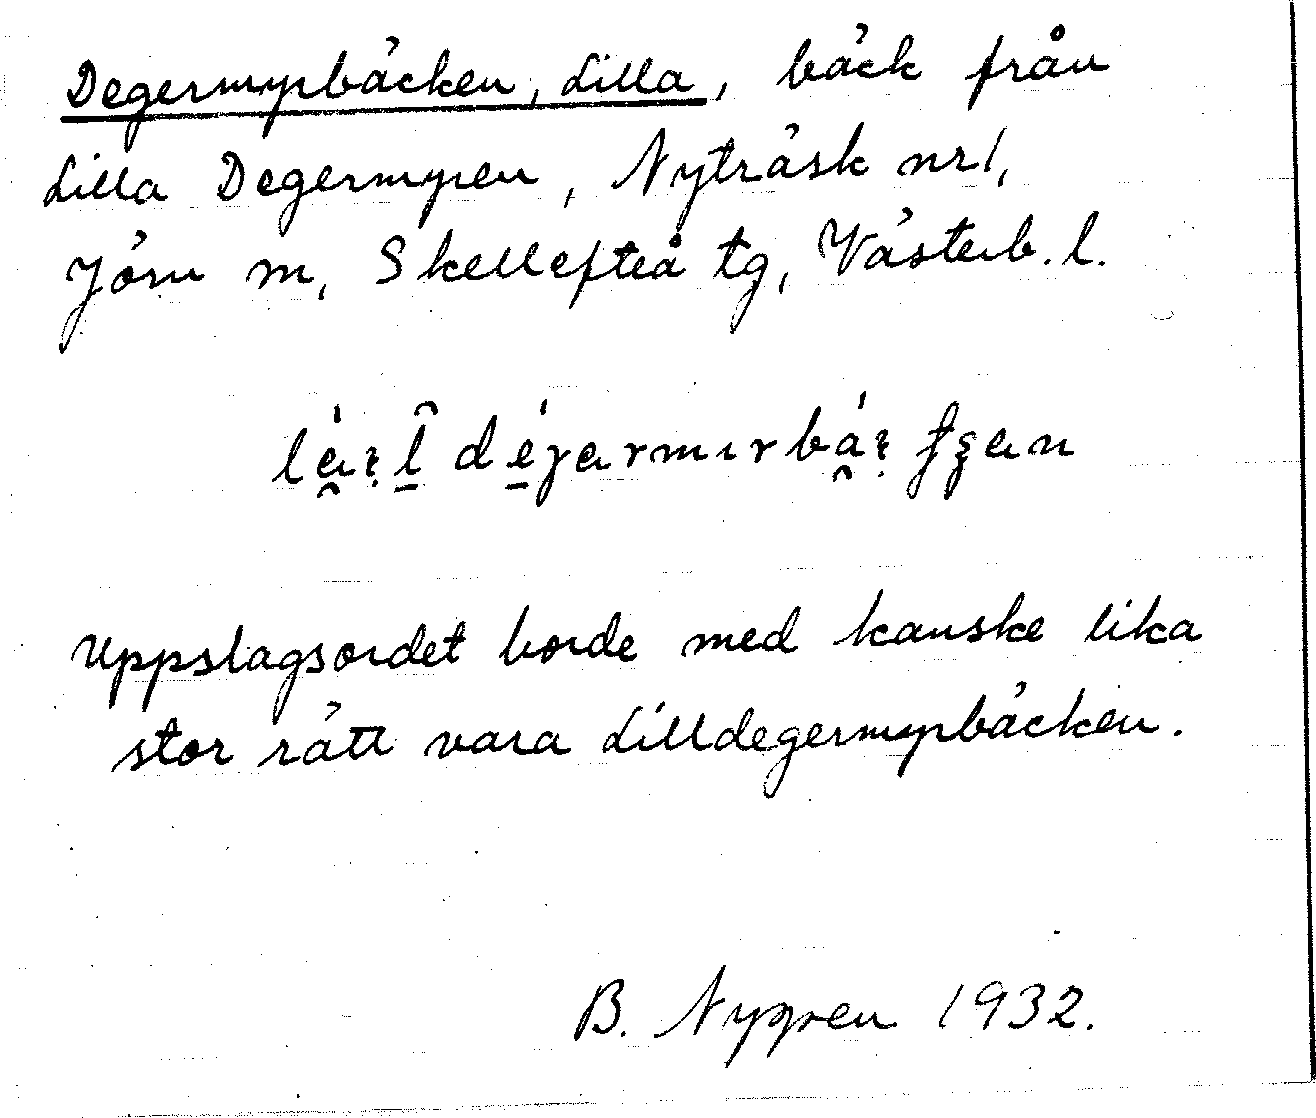 Degermyrbäcken, Lilla, bäck från
Lilla Degermyren, Nyträsk nr 1,
Jörn m, Skellefteå tg, Västerb. l.
Uppslagsordet borde med kanske lika
stor rätt vara Lilldegermyrbäcken.
B. Nygren 1932.